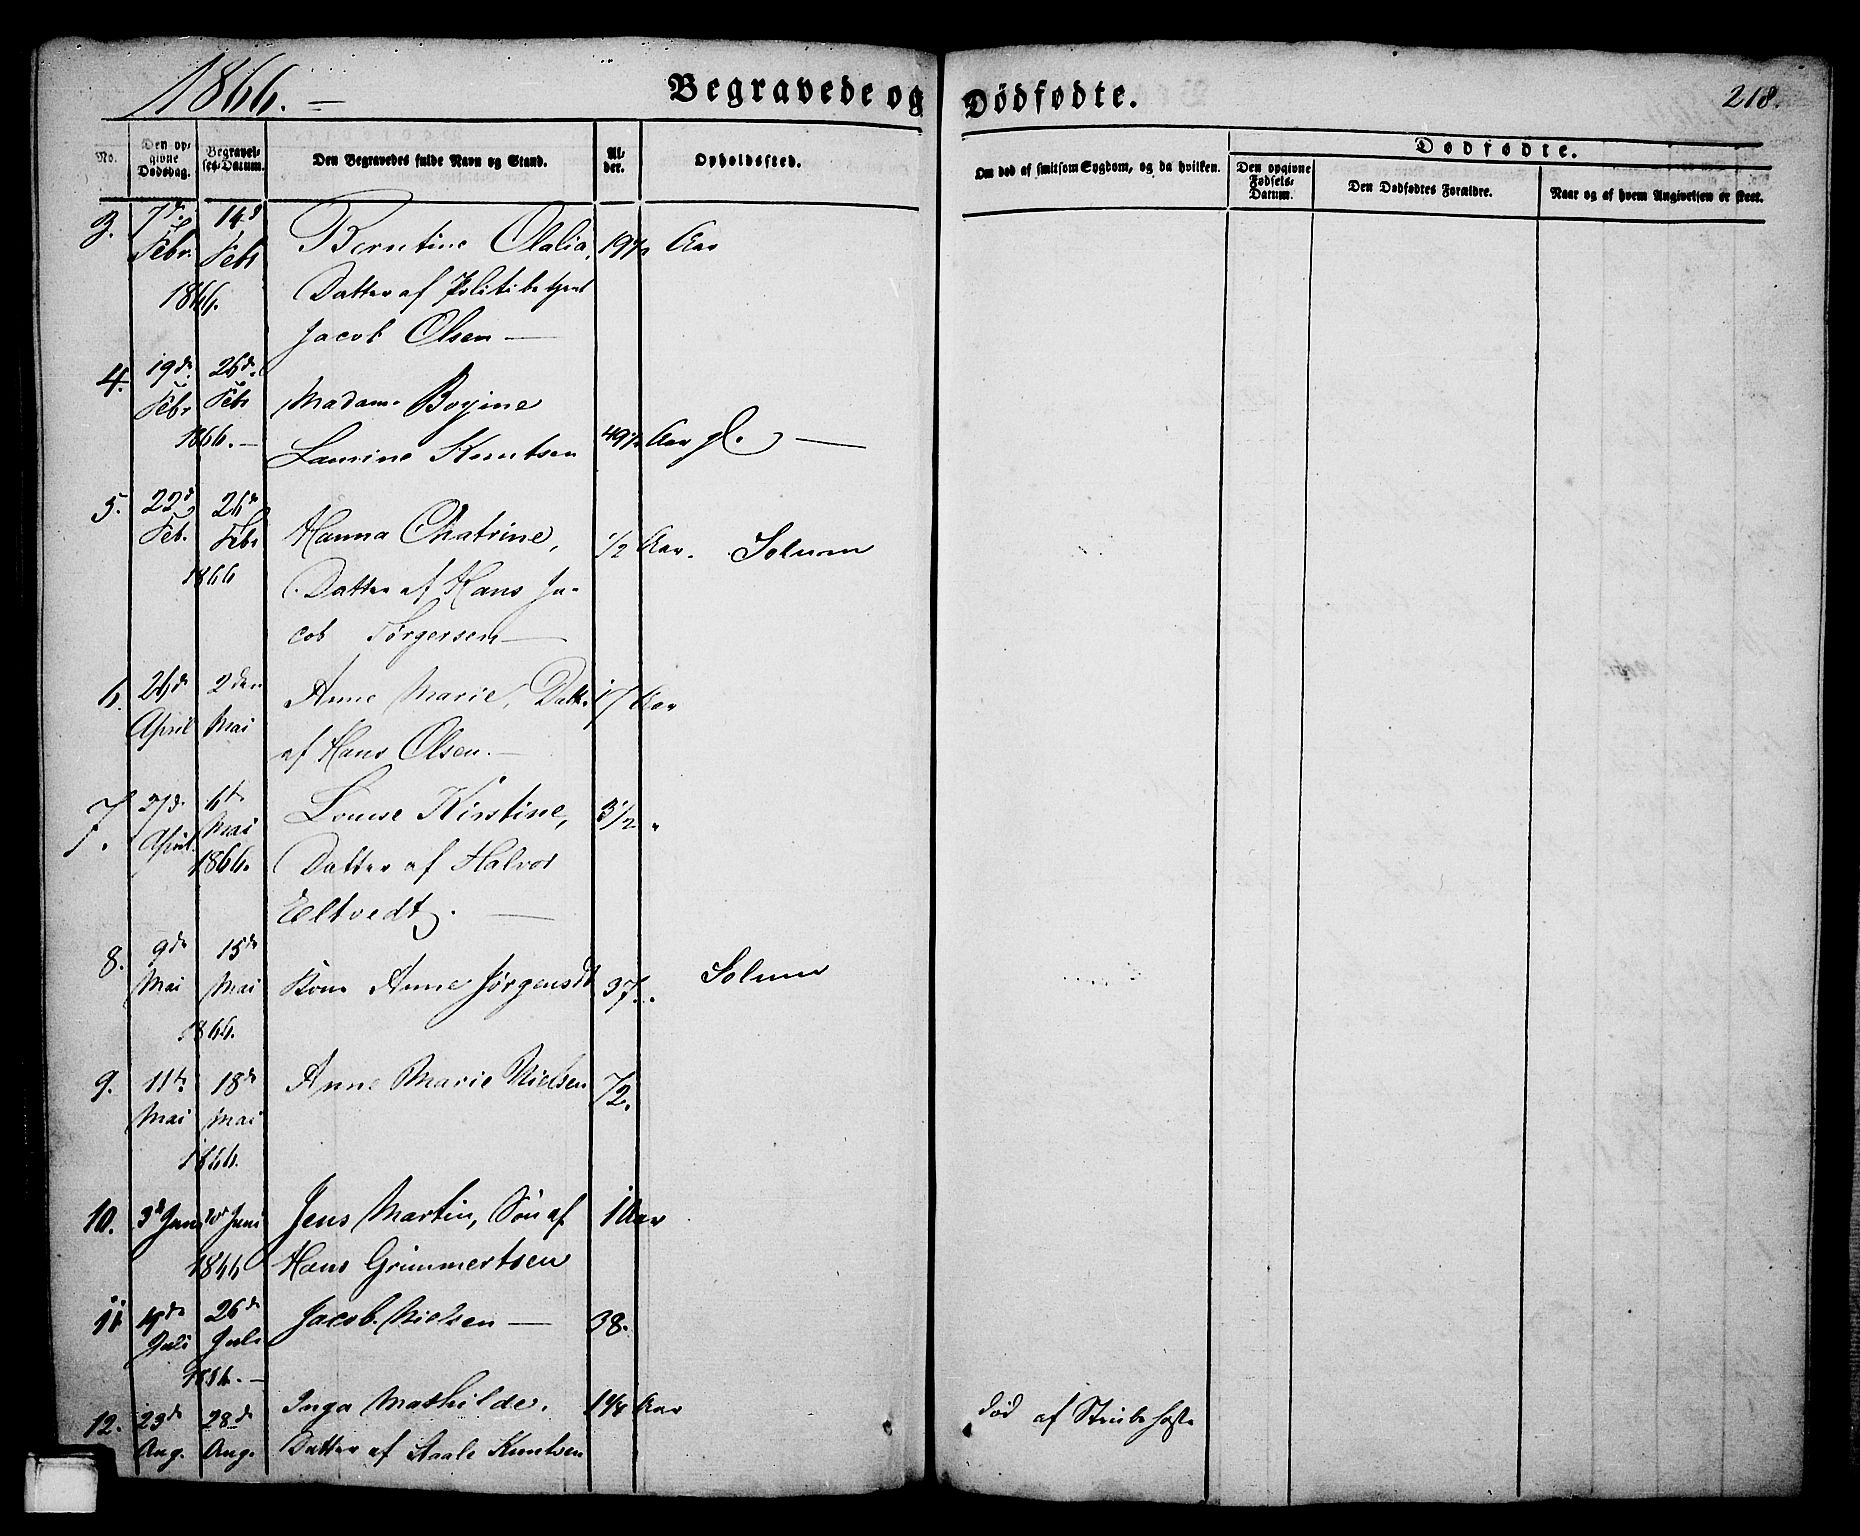 1866. —
Begravede og Dødfødte.
218.
No.
Den opgivne Dødsdag.
Begravelses-Datum.
Den Begravedes fulde Navn og Stand.
Alder.
Opholdssted.
Om død af smitsom Sygdom, og da hvilken.
Dødfødte.
Den opgivne Fødsels-Datum.
Den Dødfødtes Forældre.
Naar og af hvem Angivelsen er skeet.
3. 7de 14d
Febr. Febr Berntine Olalia, Aar
1866. Datter af Politibetjent
Jacob Olsen —
4. 19de 26de
Febr Febr Madame
1866. — Laurine Knutsen Aar gl. —
5. 22d 26de
Feb. Febr Hanna Chatrine, 1/2 Aar. Solum
1866 Datter af Hans Ja-
cob Tørgersen —
6. 26d 2den Anne Marie, Datt. 17 Aar
April Mai af Hans Olsen. —
7. 27d. 6te Louise Kirstine, 3 1/2 "
April. Mai
1866. Datter af Halvor
Eltvedt. —
8. 9de 15de Solum
Mai Mai Kone Anne Jørgensdt 37.
1866.
9. 11te 18de Anne Marie Nielsen 72.
Mai Mai
1866.
10. 3d Juni Juni Jens Martin, Søn af 1 Aar
1866 Hans Grimmertsen
11. 19de 26de Jacob Nielsen — 38.
Juli Juli
1866. —
12. 23de 28de Inga Mathilde, Aar død af Strubehoste
Aug. Aug. Datter af Aaale Knutsen